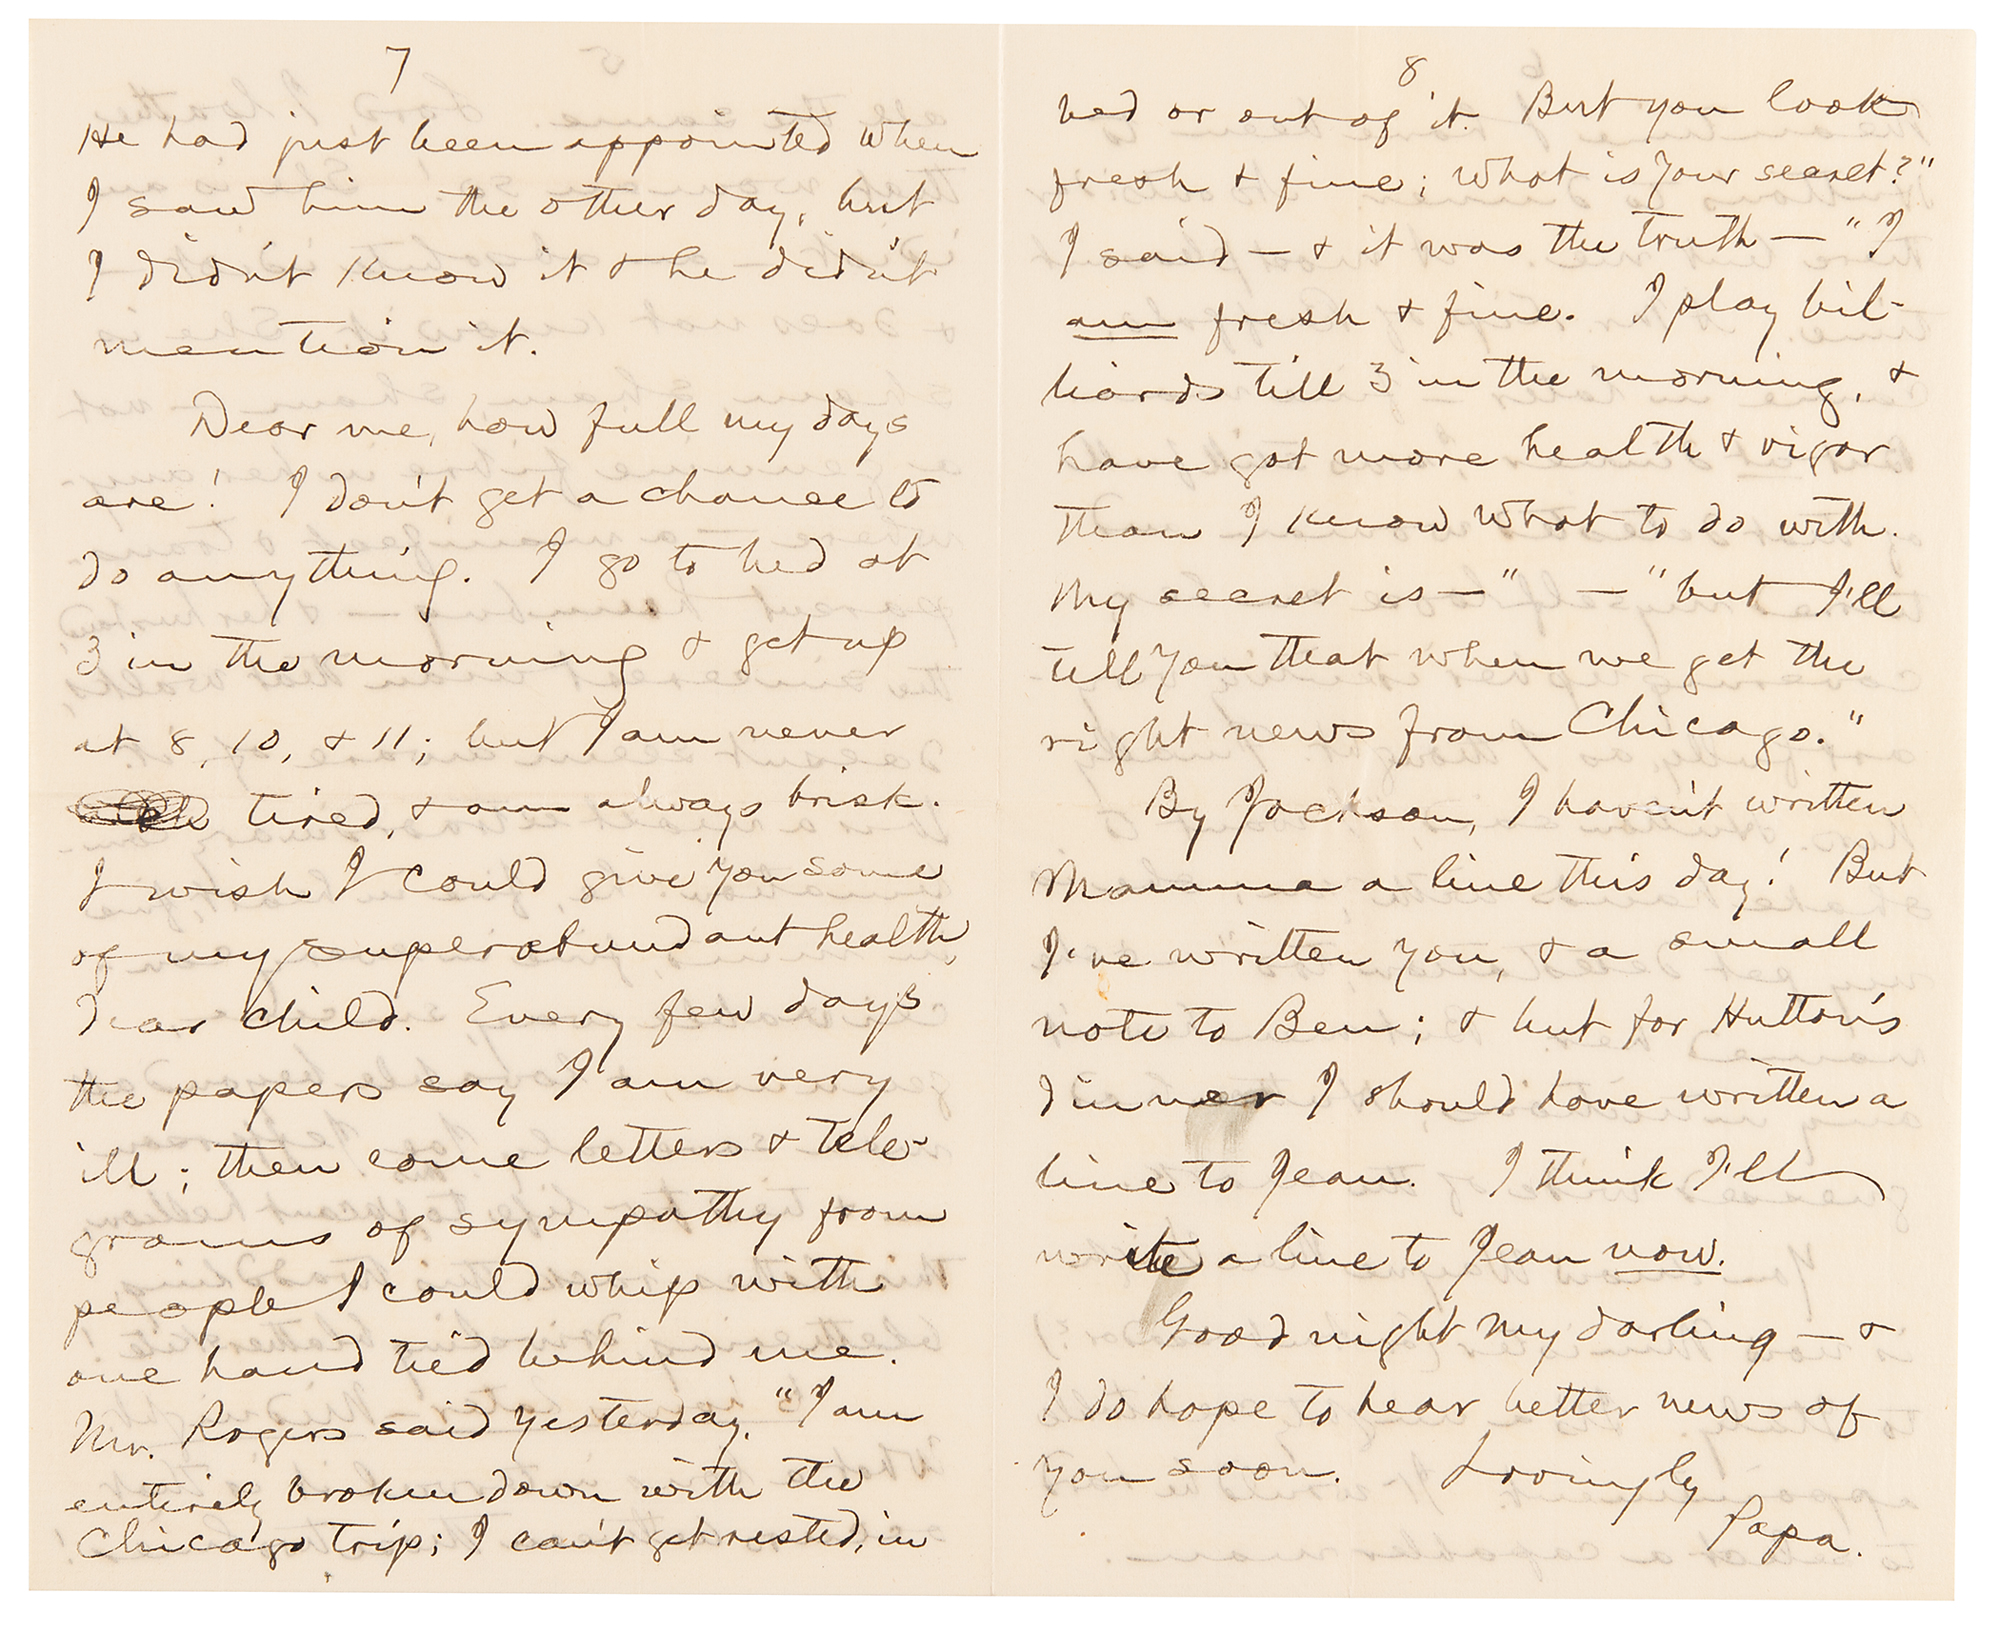 7
He had just been appointed when
I saw him the other day, but
I didn't know it & he didn't
mention it.
Dear me, how full my days
are! I don't get a chance to
do anything. I go to bed at
3 in the morning & get up
at 8, 10, & 11; but I am never
tired, & am always brisk.
I wish I could give you some
of my superabundant health,
dear child. Every few days
the papers say I am very
ill; then come letters & tele-
grams of sympathy from
people I could whip with
one hand tied behind me.
Mr. Rogers said yesterday, "I am
entirely broken down with the
Chicago trip; I can't get rested, in
8
bed or out of it. But you look
fresh & fine; what is your secret?"
I said — & it was the truth — "I
am fresh & fine. I play bil-
liards till 3 in the morning, &
have got more health & vigor
than I know what to do with.
My secret is —" — "but I'll
tell you that when we get the
right news from Chicago."
By Jackson, I haven't written
Mamma a line this day! But
I've written you, & a small
note to Ben; & but for Hutton's
dinner I should have written a
line to Jean. I think I'll
write a line to Jean now.
Good night my darling — &
I do hope to hear better news of
you soon. Lovingly
Papa.